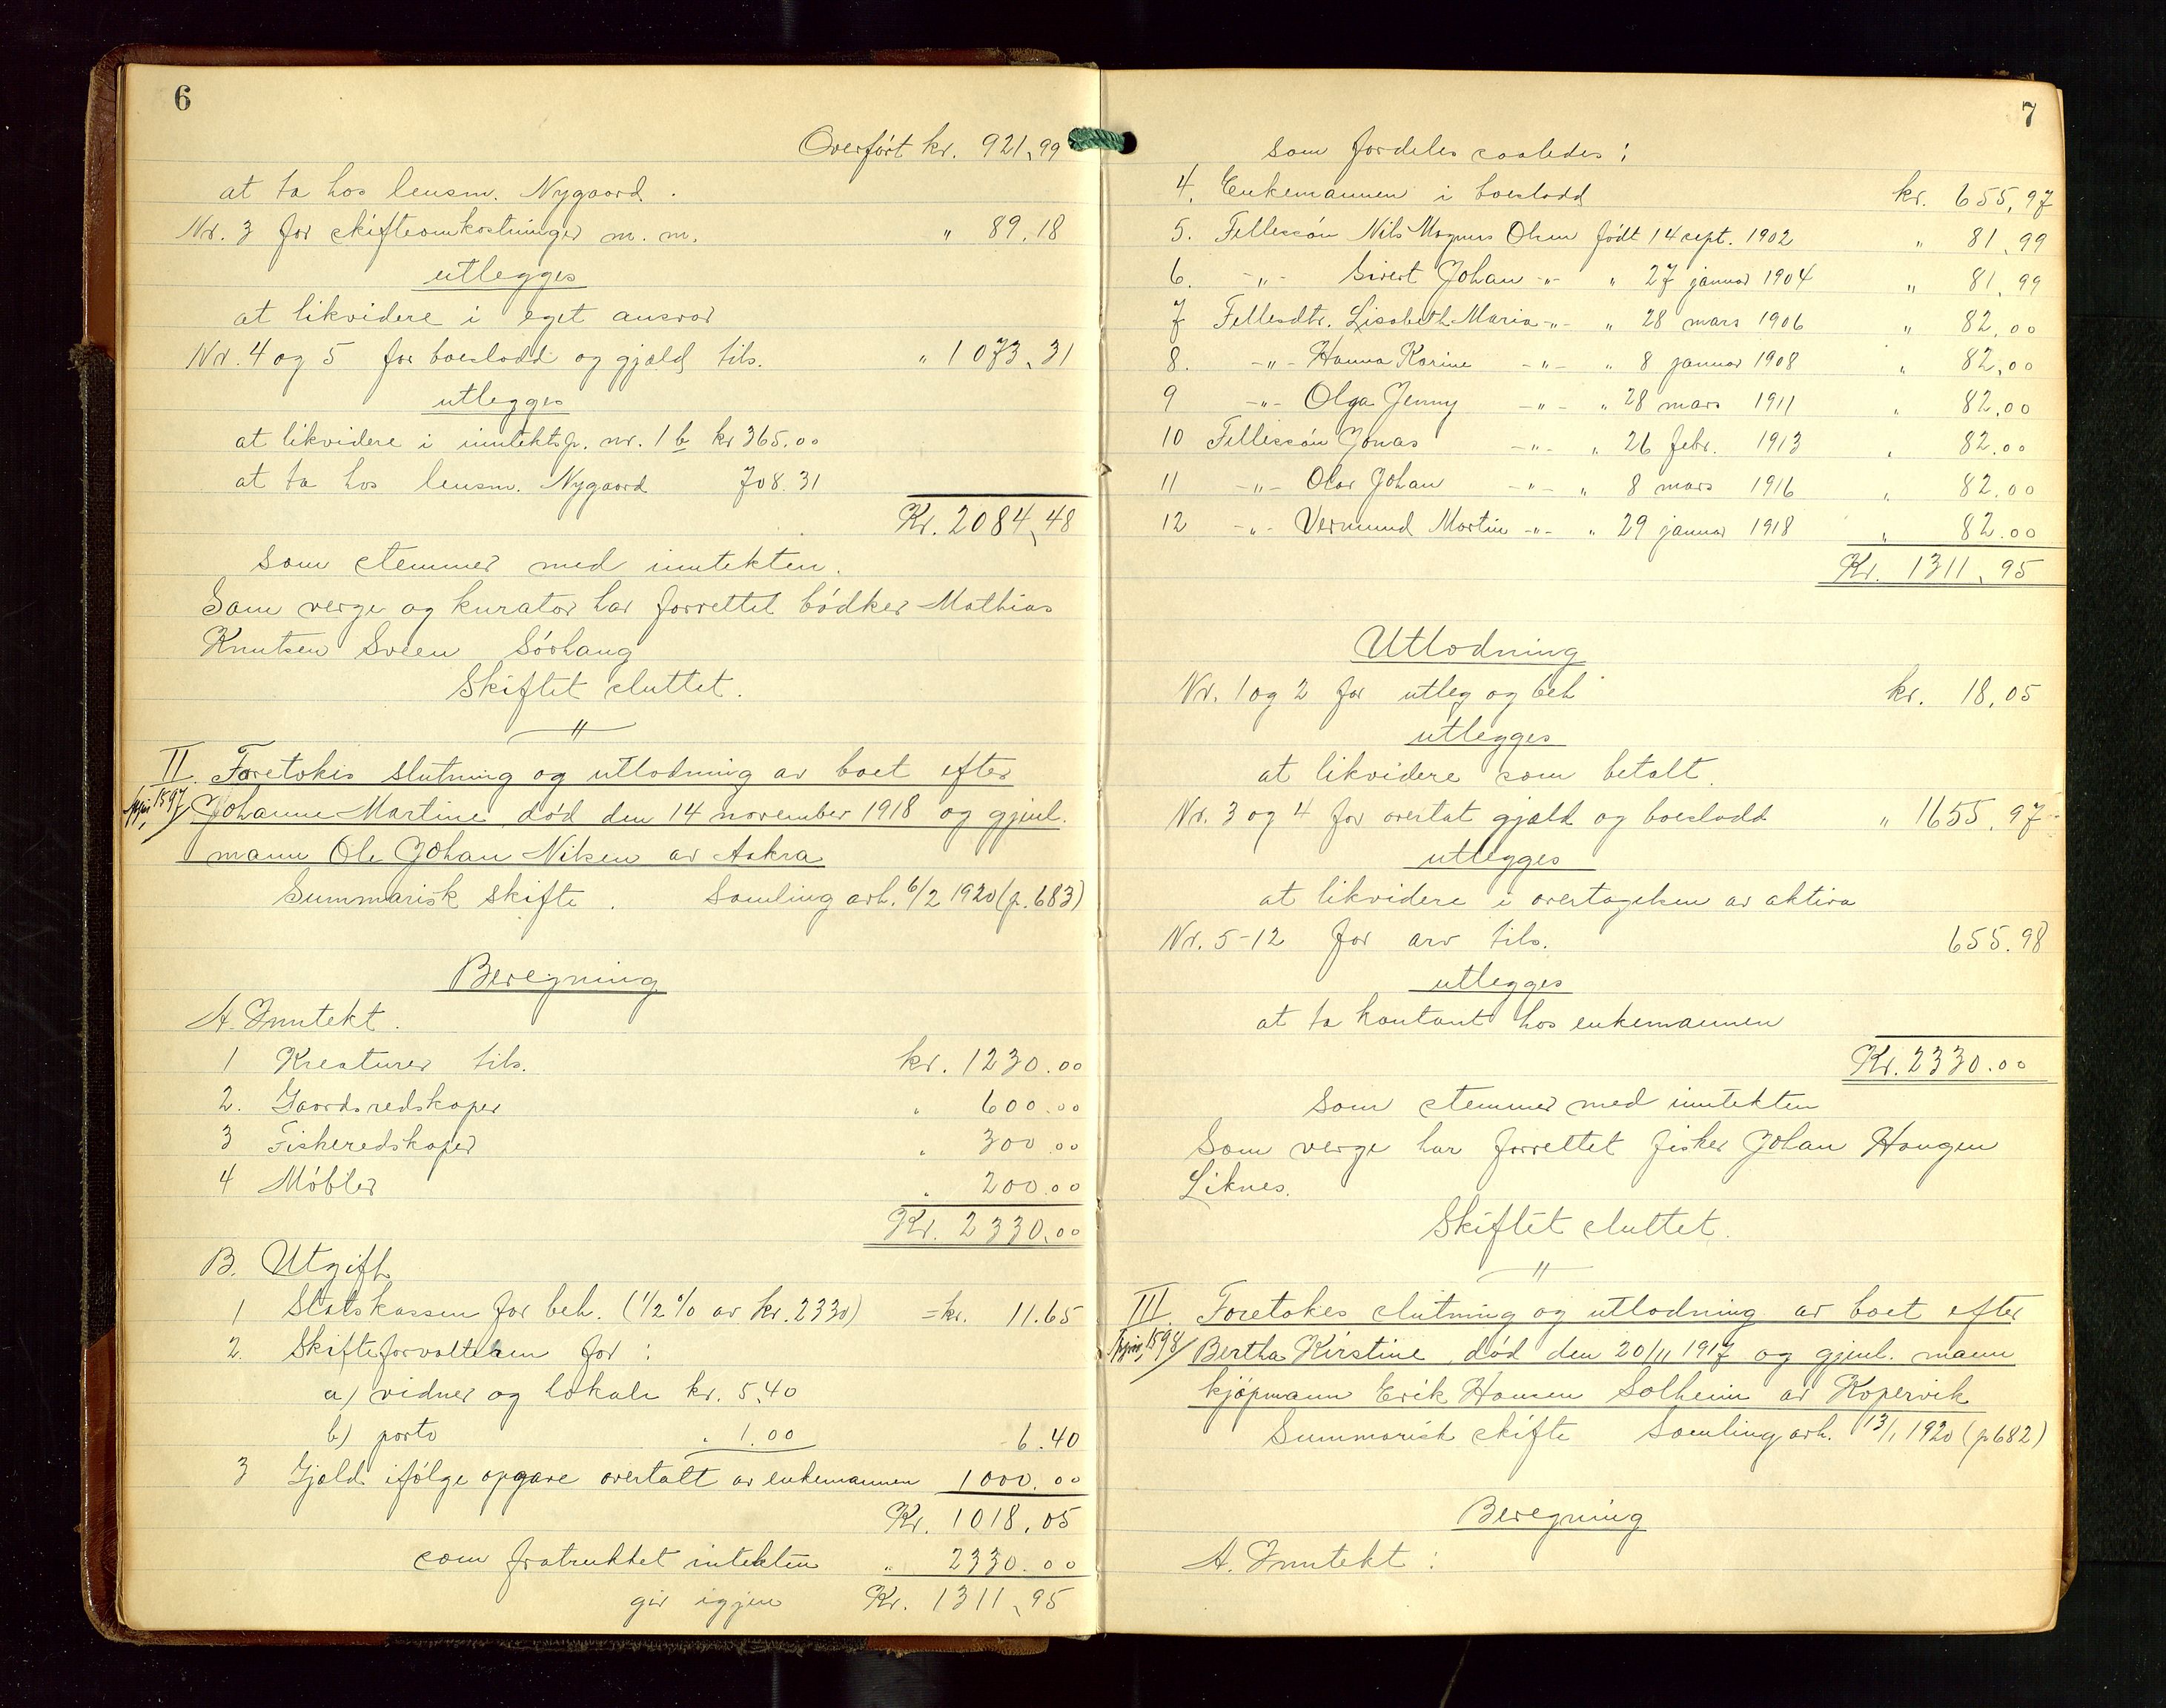 6
Overført kr. 921,99
at ta hos lensm. Nygaard.
Nr. 3 for skifteomkostninger m. m. " 89,18
utlegges
at likvidere i eget ansvar
Nr. 4 og 5 for boeslodd og gjæld tils. " 1073,31
utlegges
at likvidere i inntektsp. nr. 1 b kr 365.00
at ta hos lensm. Nygaard 708.31
Kr. 2084,48
Som stemmer med inntekten.
Som verge og kurator har forrettet bødker Mathias
Knutsen Sveen Sørhaug
Skiftet sluttet.
"
II. Foretokes slutning og utlodning av boet efter
1597/ Johanne Martine død den 14 november 1918 og gjenl.
mann Ole Johan Nilsen av Aakra
Summarisk skifte. Samling avh. 6/2 1920 (p. 683)
Beregning
A. Inntekt.
1 Kreaturer tils. kr. 1230.00
2. Gaardsredskaper " 600.00
3 Fiskeredskaper " 300.00
4 Møbler " 200.00
Kr. 2330,00
B. Utgift
1 Statskassen for beh. (1/2 % av kr. 2330) = kr. 11.65
2. Skifteforvalteren for:
a) vidner og lokale kr. 5.40
b) porto " 1.00 6.40
3 Gjæld ifølge opgave overtatt av enkemannen 1000.00
Kr. 1018,05
som fratrukket intekten " 2330.00
gir igjen Kr. 1311,95
7
som fordeles saaledes:
4. Enkemannen i boeslodd kr. 655,97
5. Fellessøn Nils Magnus Olsen født 14 sept. 1902 " 81,99
6. -"- Sivert Johan -"- " 27 januar 1904 " 81,99
7 Fellesdtr. Lisabeth Maria -"- " 28 mars 1906 " 82,00
8. -"- Hanna Karine -"- " 8 januar 1908 " 82,00
9 -"- Olga Jenny -"- " 28 mars 1911 " 82,00
10 Fellessøn Jonas -"- " 26 febr. 1913 " 82.00
11 -"- Olav Johan -"- " 8 mars 1916 " 82.00
12 -"- Vermund Martin -"- " 29 januar 1918 " 82.00
Kr. 1311,95
Utlodning
Nr. 1 og 2 for utleg og beh. kr. 18,05
utlegges
at likvidere som betalt.
Nr. 3 og 4 for overtat gjæld og boeslodd " 1655,97
utlegges
at likvidere i overtagelsen av aktiva
Nr. 5-12 for arv tils. 655.98
utlegges
at ta kontant hos enkemannen
Kr. 2330.00
Som stemmer med inntekten
Som verge har forrettet fisker Johan Haugen
Liknes.
Skiftet sluttet.
"
III. Foretokes slutning og utlodning av boet efter
1598/ Bertha Kirstine, død den 20/11 1917 og gjenl. mann
kjøpmann Erik Hansen Solheim av Kopervik
Summarisk skifte Samling avh. 13/1 1920 (p 682)
Beregning
A. Inntekt: